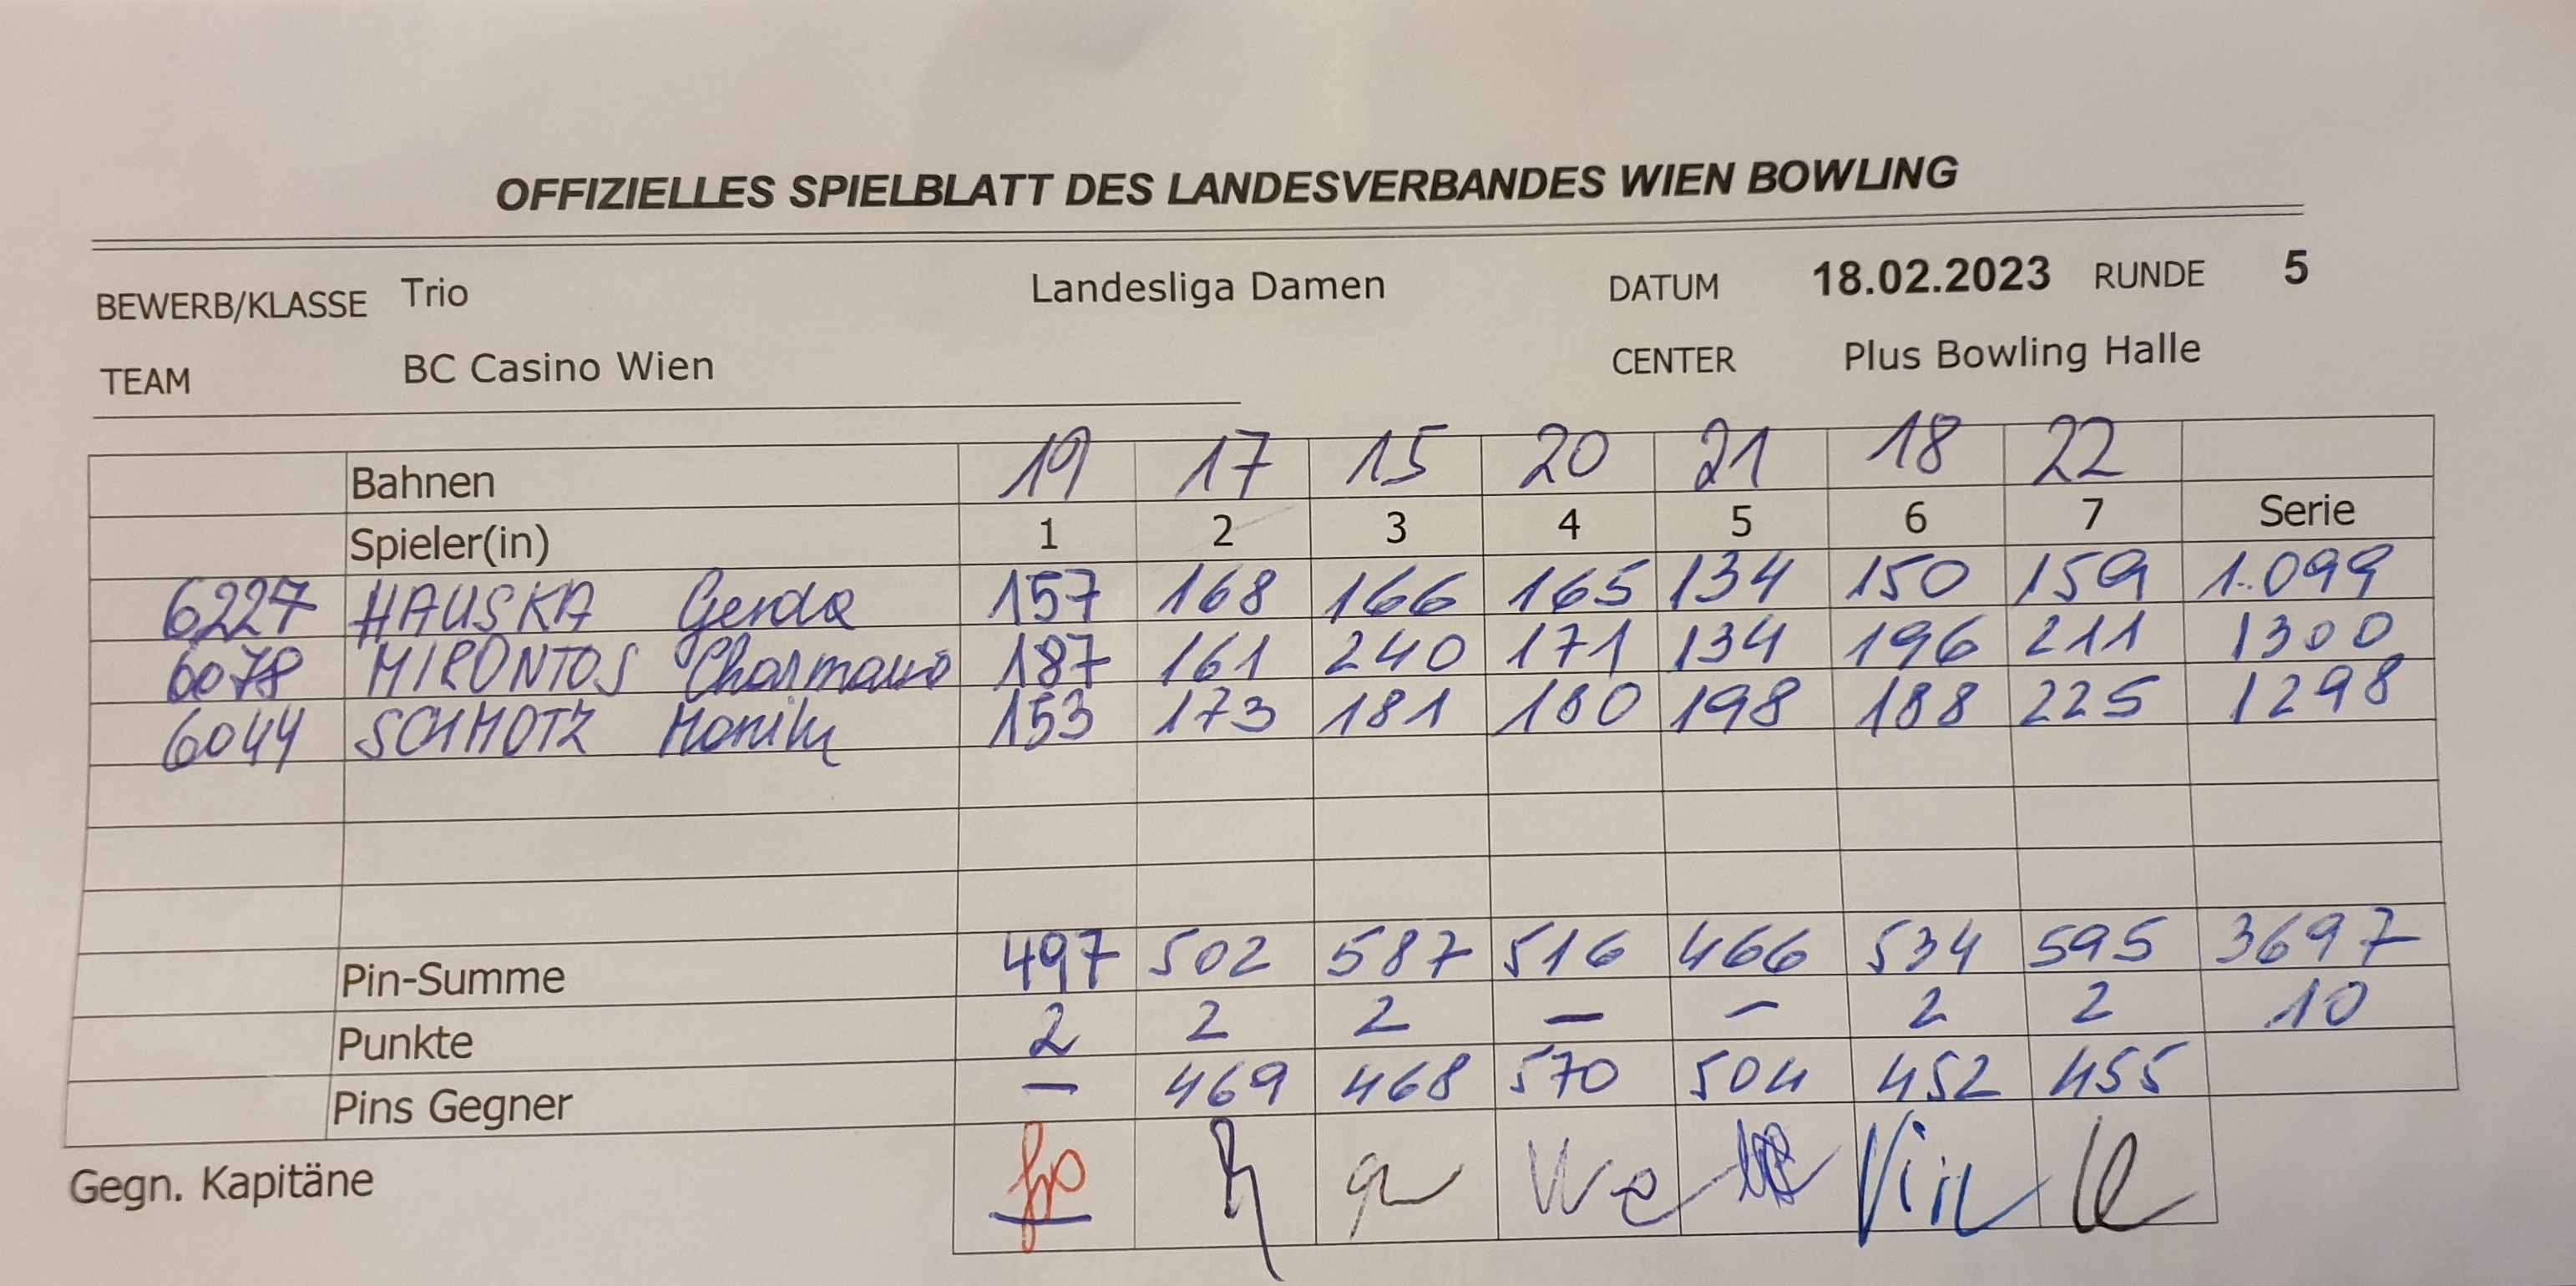 OFFIZIELLES SPIELBLATT DES LANDESVERBANDES WIEN BOWLING
BEWERB/KLASSE Trio Landesliga Damen DATUM 18.02.2023 RUNDE 5
TEAM BC Casino Wien CENTER Plus Bowling Halle
Bahnen 19 17 15 20 21 18 22
Spieler(in) 1 2 3 4 5 6 7 Serie
6227 HAUSKA Gerda 157 168 166 165 134 150 159 1.099
6078 MIRONTOS 187 161 240 171 134 196 211 1300
6044 SCHMOTZ Monika 153 173 181 180 198 188 225 1298
Pin-Summe 497 502 587 516 466 534 595 3697
Punkte 2 2 2 – – 2 2 10
Pins Gegner – 469 468 570 504 452 455
Gegn. Kapitäne